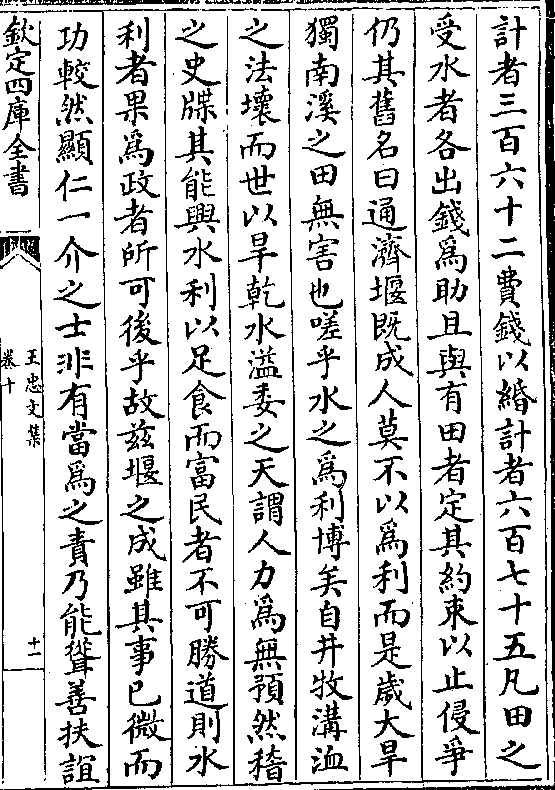 計者三百六十二費錢以緡計者六百七十五凡田之
受水者各出錢爲助且與有田者定其約束以止侵爭
仍其舊名曰通濟堰既成人莫不以爲利而是歲大旱
獨南溪之田無害也嗟乎水之爲利博矣自井牧溝洫
之法壞而世以旱乾水溢委之天謂人力爲無預然稽
之史牒其能興水利以足食而富民者不可勝道則水
利者果爲政者所可後乎故兹堰之成雖其事已微而
功較然顯仁一介之士非有當爲之責乃能聳善扶誼
欽定四庫全書
王忠文集
卷十
十一